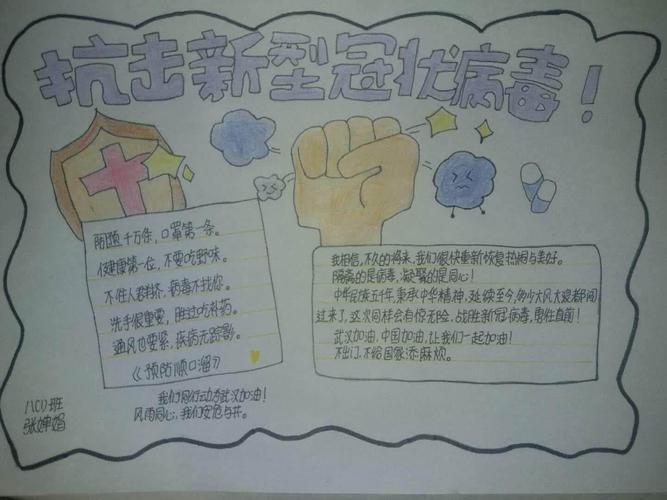 抗击新型冠状病毒！
防疫千万条，口罩第一条。
健康第一位，不要吃野味。
不往人群挤，病毒不找你。
洗手很重要，胜过吃补药。
通风也要紧，疾病无踪影。
《预防顺口溜》
我相信，不久的将来，我们很快重新恢复热闹与美好。
隔离的是病毒，凝聚的是同心！
中华民族五千年，秉承中华精神，延续至今，多少大风大浪都闯
过来了，这次同样会有惊无险，战胜新冠病毒，勇往直前！
武汉加油，中国加油，让我们一起加油！
不出门，不给国家添麻烦。
我们同行动为武汉加油！
风雨同心，我们安危与共。
八(1)班
张婵娟